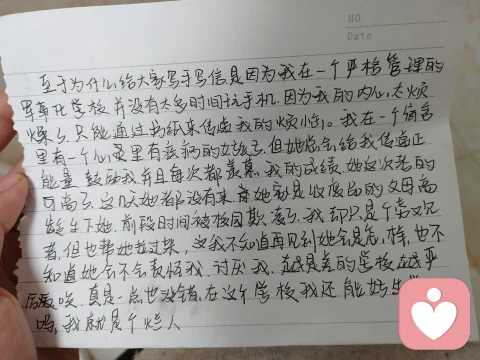 NO.
Date
至于为什么给大家写手写信是因为我在一个严格管理的
军事化学校并没有太多时间玩手机.因为我的内心太烦
燥了只能通过书纸来传递我的烦恼。我在一个宿舍
里有一个心灵里有疾病的女孩子.但她总会给我传递正
能量 鼓励我并且每次都羡慕我的成绩.她这次考的
可高了.这几天她都没有来.她就是收废品的父母高
龄生下她.前段时间被校园欺凌了.我却只是个旁观
者.但也帮她找过来.这我不知道再见到她会是怎样.也不
知道她会不会责怪我.讨厌我.越是差的学校越严
厉.唉.真是一点也没错.在这个学校我还能好
吗.我就是个烂人